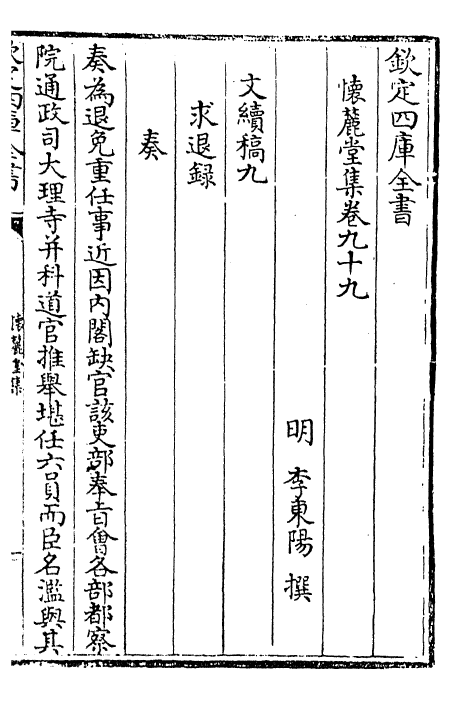 欽定四庫全書
懷麓堂集卷九十九
明 李東陽 撰
文續稿九
求退録
奏
奏為退免重任事近因内閣缺官該吏部奉旨㑹各部都察
院通政司大理寺并科道官推舉堪任六員而臣名濫與其
欽定四庫全書
懷麓堂集
一